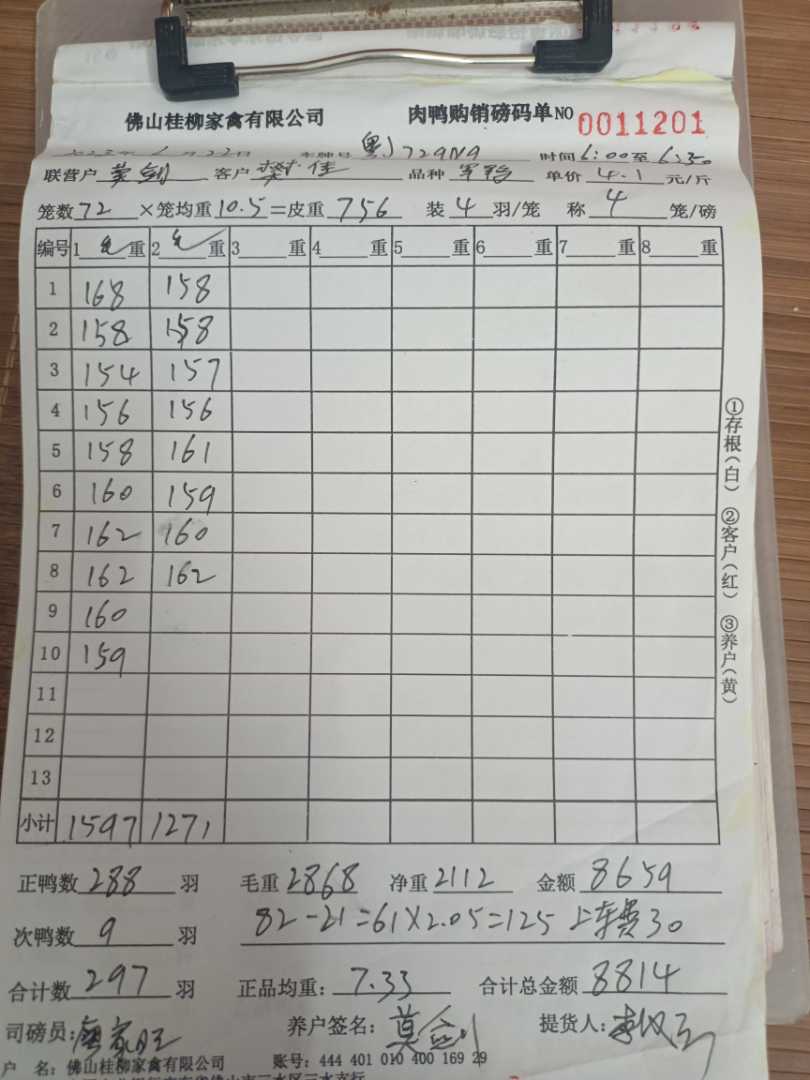 佛山桂柳家禽有限公司 肉鸭购销磅码单 NO 0011201
6月22日 车牌号 粤J729N9 时间 6:00 至 6:30
联营户 莫剑 客户 樊佳 品种 单价 4.1 元/斤
笼数 72 ×笼均重 10.5 =皮重 756 装 4 羽/笼 称 4 笼/磅
编号 1 毛 重 2 毛 重 3 重 4 重 5 重 6 重 7 重 8 重
1 168 158
2 158 158
3 154 157
4 156 156
5 158 161
6 160 159
7 162 160
8 162 162
9 160
10 159
11
12
13
小计 1597 1271
①存根(白) ②客户(红) ③养户(黄)
正鸭数 288 羽 毛重 2868 净重 2112 金额 8659
次鸭数 9 羽 82-21=61×2.05=125 上车费30
合计数 297 羽 正品均重: 7.33 合计总金额 8814
司磅员: 养户签名: 莫剑 提货人:
户 名: 佛山桂柳家禽有限公司 账号: 444 401 010 400 169 29